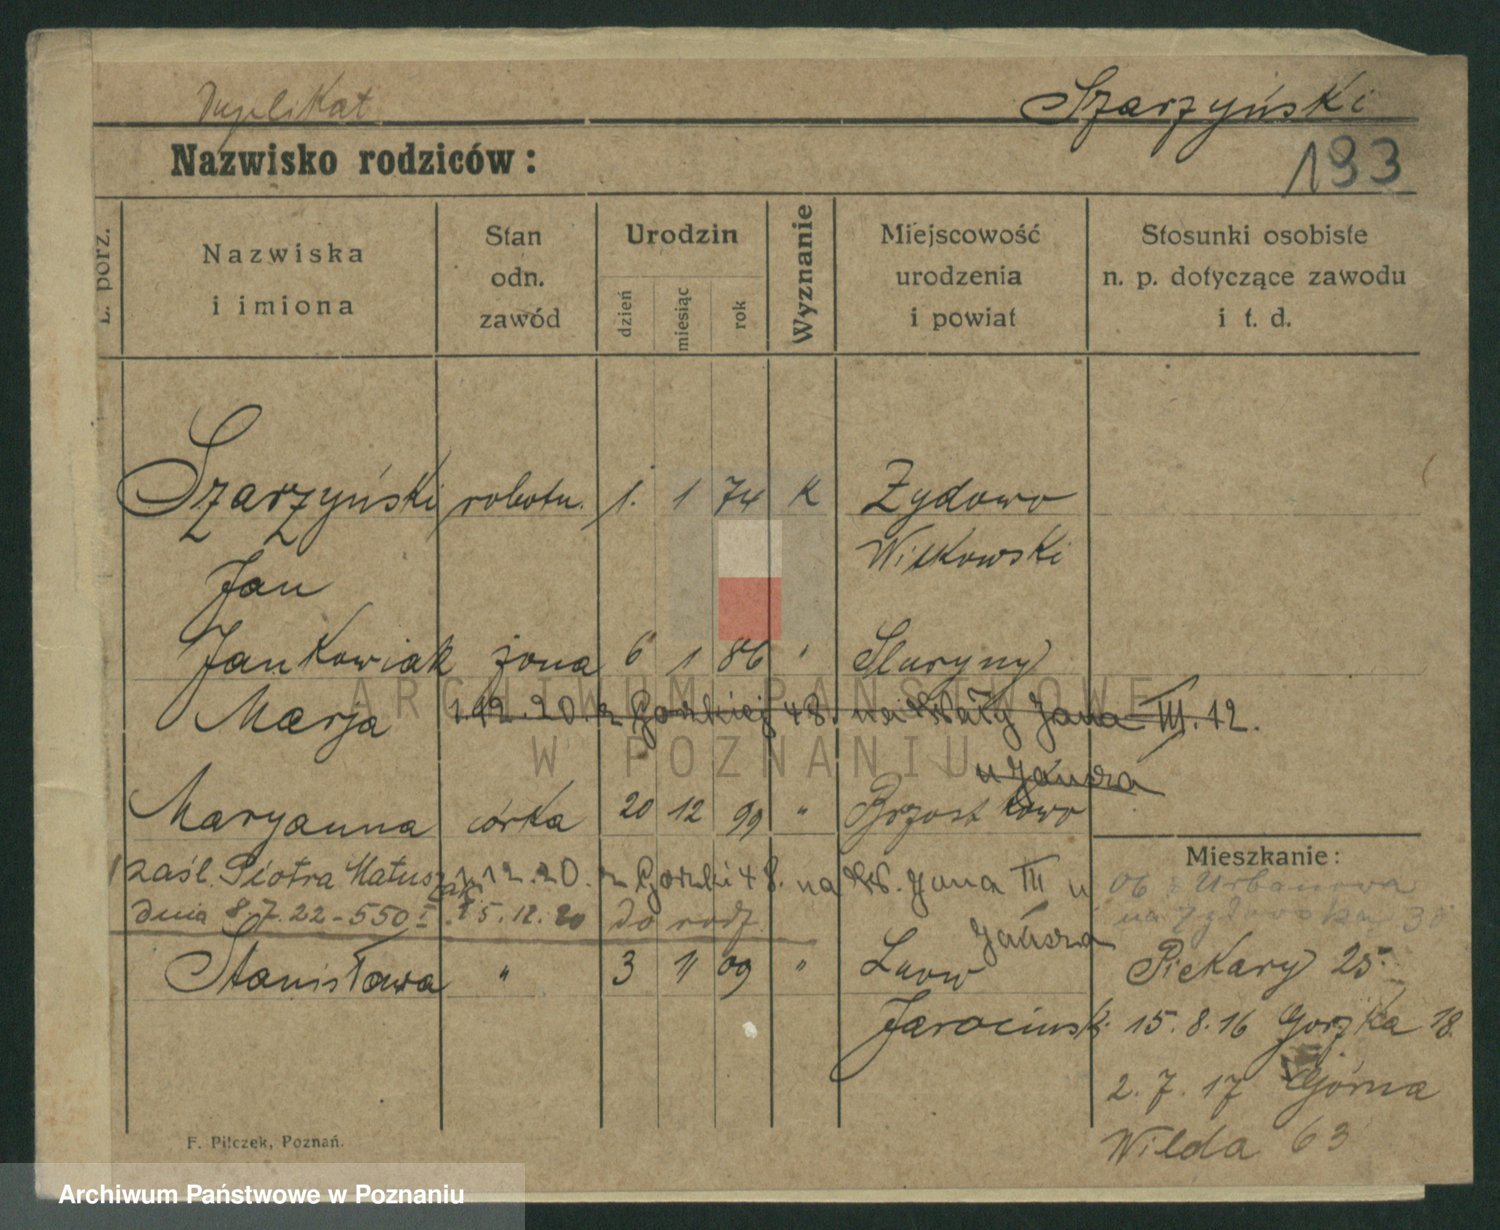 Duplikat
Szarzyński
Nazwisko rodziców:
193
L. porz.
Nazwiska
i imiona
Stan
odn.
zawód
Urodzin
dzień
miesiąc
rok
Wyznanie
Miejscowość
urodzenia
i powiat
Stosunki osobiste
n. p. dotyczące zawodu
i t. d.
Szarzyński robotn. 1. 1 74 K Zydowo
Witkowski
Jan
Jankowiak żona 6 1 86 "
Marja 1.12.20. z 48. na Wały Jana III. 12.
u Jánsza
Maryanna córka 20 12 99 " Brzostkowo
zaśl. Piotra Matuszak 1.12.20. z 48. na W. Jana III u
dnia 8.7.22-550 I. 15.12.20 do rodz. Jánsza
Stanisława " 3 11 09 " Lwow
Jarocinsk.
Mieszkanie:
Urbanowa
38
Piekary 25
15.8.16 Gorzka 18
2.7.17 Górna
Wilda 63
F. Pilczek, Poznań.
ARCHIWUM PAŃSTWOWE
W POZNANIU
Archiwum Państwowe w Poznaniu